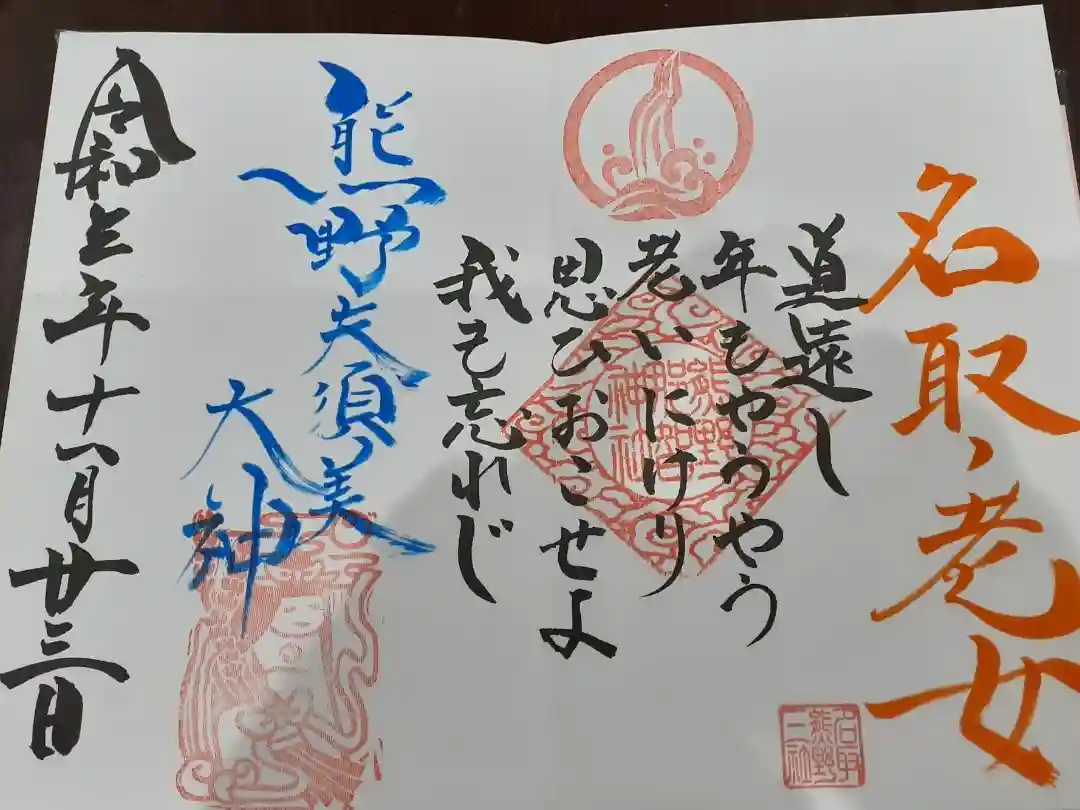 名取ノ老女
道遠し
年もやうやう
老いにけり
思ひおこせよ
我も忘れじ
熊野那智神社
名取熊野三社
熊野夫須美
大神
令和三年十一月廿三日